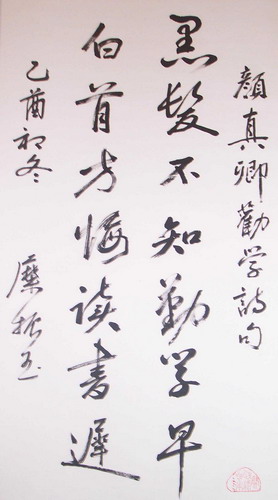 顔真卿勸学詩句
黒髮不知勤学早
白首方悔读書遲
乙酉初冬
糜振玉